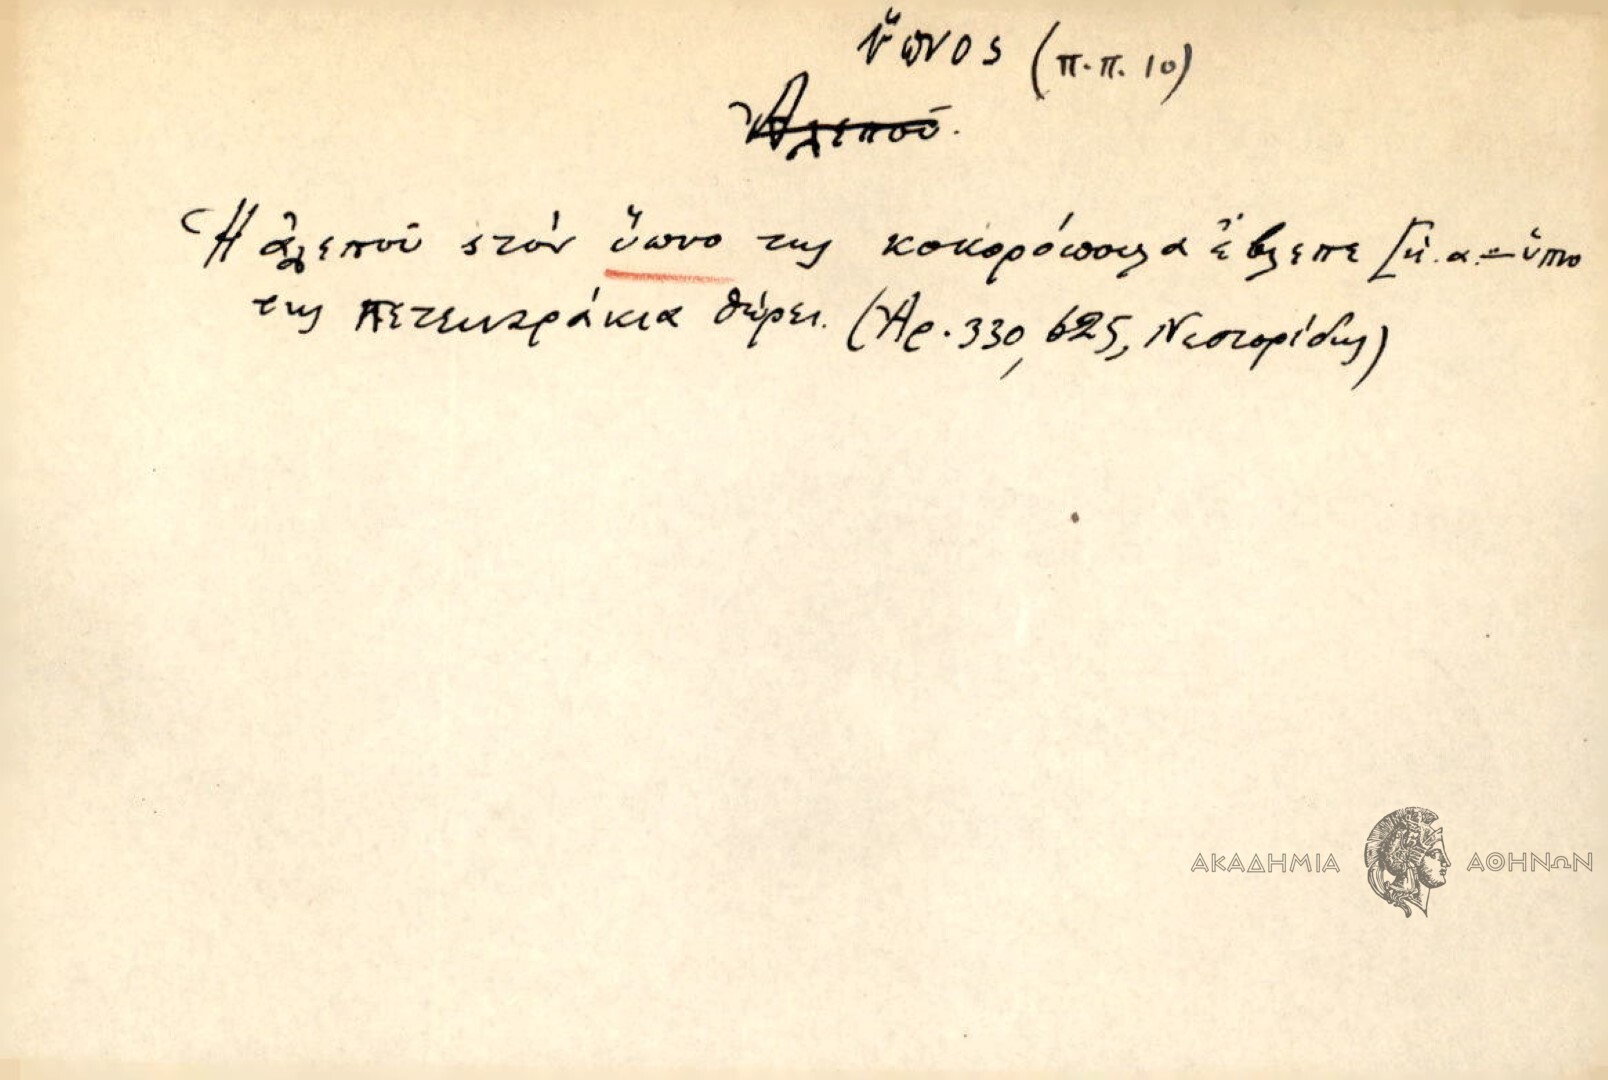 ὕπνος (π.π. 10)
Ἀλεπού.
Ἡ ἀλεπού στόν ὕπνο της κοκορόπουλα ἔβλεπε [ἡ. α. – ὕπνο
της πετειναράκια θώρει. (Ἀρ. 330, 625, Νεστορίδης)
ΑΚΑΔΗΜΙΑ ΑΘΗΝΩΝ